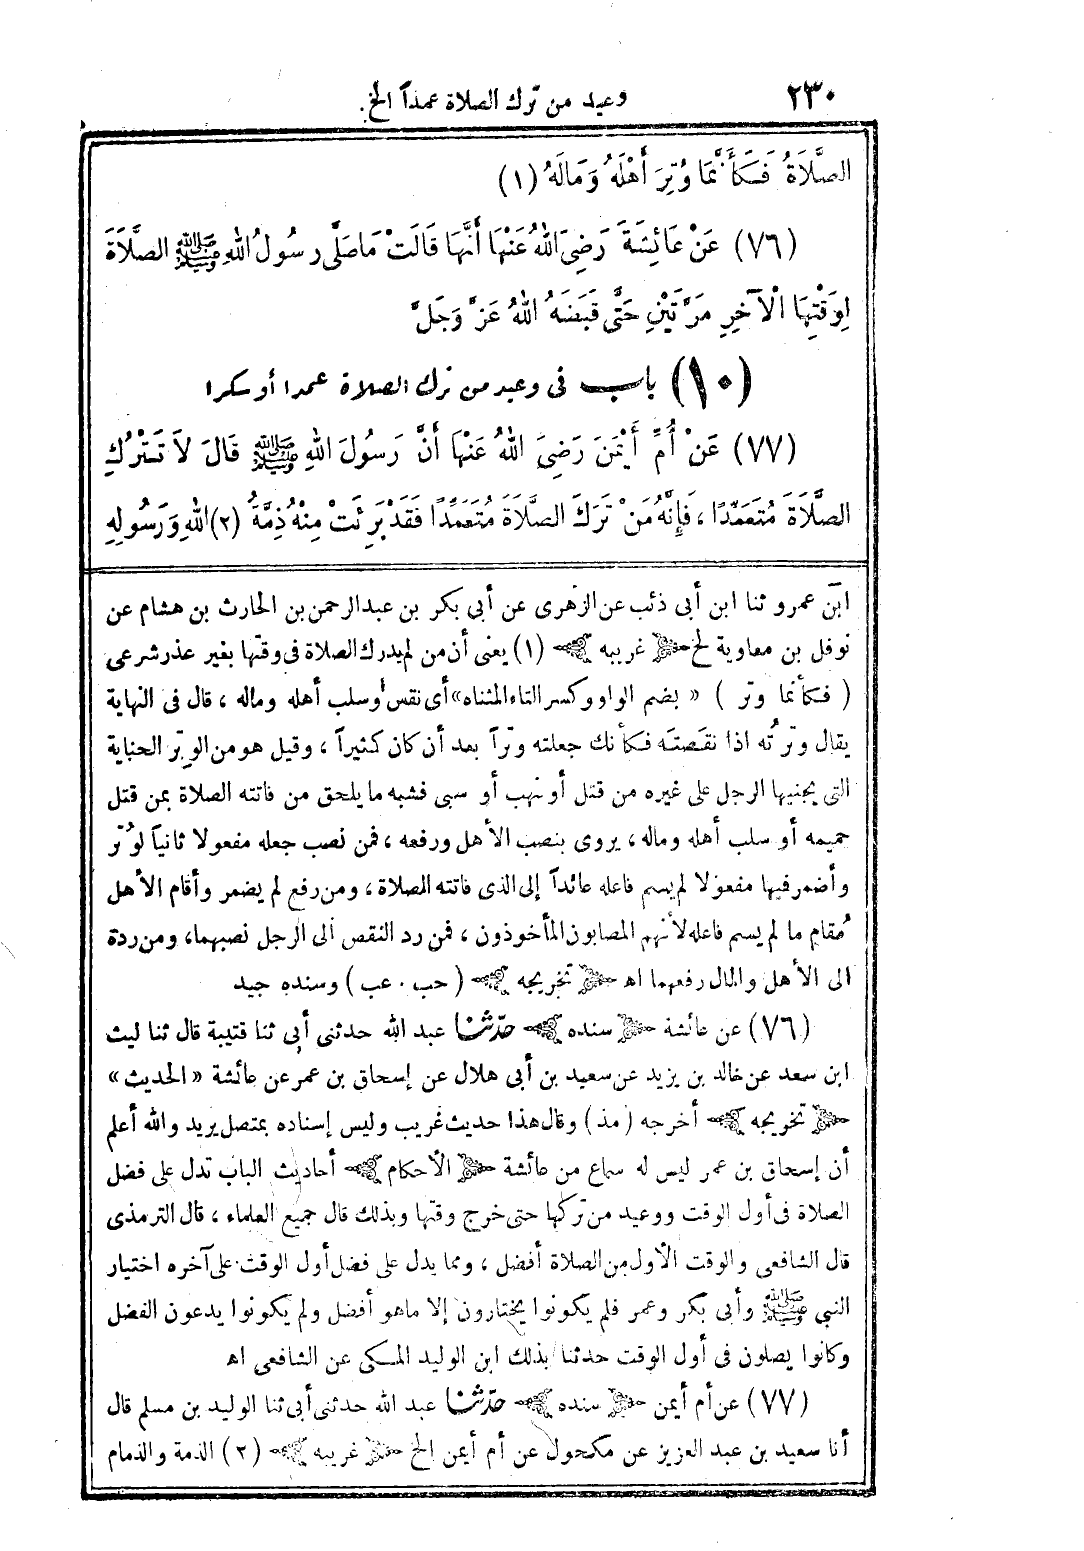 ٢٣٠ وعيد من ترك الصلاة عمداً الخ.
الصَّلَاةُ فَكَأَنَّمَا وُتِرَ أَهْلَهُ وَمَالَهُ (١)
(٧٦) عَنْ عَائِشَةَ رَضِيَ اللهُ عَنْهَا أَنَّهَا قَالَتْ مَا صَلَّى رسُولُ اللهِ ﷺ الصَّلَاةَ
لِوَقْتِهَا الْآخِرِ مَرَّتَيْنِ حَتَّى قَبَضَهُ اللهُ عَزَّ وَجَلَّ
(١٠) باب فى وعيد من ترك الصلاة عمدا أو سكرا
(٧٧) عَنْ أُمِّ أَيْمَنَ رَضِيَ اللهُ عَنْهَا أَنَّ رَسُولَ اللهِ ﷺ قَالَ لَا تَتْرُكِ
الصَّلَاةَ مُتَعَمِّدًا ، فَإِنَّهُ مَنْ تَرَكَ الصَّلَاةَ مُتَعَمِّدًا فَقَدْ بَرِئَتْ مِنْهُ ذِمَّةُ (٢) اللهِ وَرَسُولِهِ
ابن عمرو ثنا ابن أبى ذئب عن الزهرى عن أبى بكر بن عبد الرحمن بن الحارث بن هشام عن
نوفل بن معاوية الخ ﴿ غريبه ﴾ (١) يعنى أن من لم يدرك الصلاة فى وقتها بغير عذر شرعى
( فكأنما وتر ) « بضم الواو وكسر التاء المثناه » أى نقص أو سلب أهله وماله ، قال فى النهاية
يقال وترْتُه اذا نقصته فكأنك جعلته وتراً بعد أن كان كثيراً ، وقيل هو من الوِتر الجناية
التى يجنيها الرجل على غيره من قتل أو نهب أو سبى فشبه ما يلحق من فاتته الصلاة بمن قتل
حميمه أو سلب أهله وماله ، يروى بنصب الأهل ورفعه ، فمن نصب جعله مفعولا ثانياً لوُتر
وأضمر فيها مفعولا لم يسم فاعله عائداً إلى الذى فاتته الصلاة ، ومن رفع لم يضمر وأقام الأهل
مُقام ما لم يسم فاعله لأنهم المصابون المأخوذون ، فمن رد النقص الى الرجل نصبهما، ومن ردة
الى الأهل والمال رفعهما اه ﴿ تخريجه ﴾ ( حب . عب ) وسنده جيد
(٧٦) عن عائشة ﴿ سنده ﴾ حدّثنا عبد الله حدثنى أبى ثنا قتيبة قال ثنا ليث
ابن سعد عن خالد بن يزيد عن سعيد بن أبى هلال عن إسحاق بن عمر عن عائشة « الحديث »
﴿ تخريجه ﴾ أخرجه ( مذ ) وقال هذا حديث غريب وليس إسناده بمتصل يريد والله أعلم
أن إسحاق بن عمر ليس له سماع من عائشة ﴿ الأحكام ﴾ أحاديث الباب تدل على فضل
الصلاة فى أول الوقت ووعيد من تركها حتى خرج وقتها وبذلك قال جميع العلماء ، قال الترمذى
قال الشافعى والوقت الأول من الصلاة أفضل ، ومما يدل على فضل أول الوقت على آخره اختيار
النبى ﷺ وأبى بكر وعمر فلم يكونوا يختارون إلا ماهو أفضل ولم يكونوا يدعون الفضل
وكانوا يصلون فى أول الوقت حدثنا بذلك ابن الوليد المكى عن الشافعى اه
(٧٧) عن أم أيمن ﴿ سنده ﴾ حدّثنا عبد الله حدثنى أبى ثنا الوليد بن مسلم قال
أنا سعيد بن عبد العزيز عن مكحول عن أم أيمن الخ ﴿ غريبه ﴾ (٢) الذمة والذمام